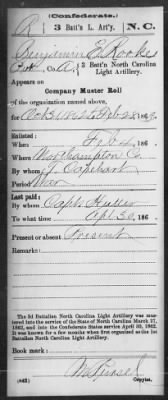 (Confederate.)
R 3 Batt'n L. Art'y. N.C.
Benjamin E. Rooke
Pvt, Co. A, 3 Batt'n North Carolina
Light Artillery.
Appears on
Company Muster Roll
of the organization named above,
for Oct 31/62 to Feb 28, 1863.
Enlisted:
When Feb 4, 186
Where Northampton Co
By whom Capehart
Period War
Last paid:
By whom Capt.
To what time 30, 186
Present or absent Present
Remarks:
The 3d Battalion North Carolina Light Artillery was mustered
into the service of the State of North Carolina March 27,
1862, and into the Confederate States service April 30, 1862.
It was known for a few months when first organized as the 1st
Battalion North Carolina Light Artillery.
Book mark:
(642) Copyist.